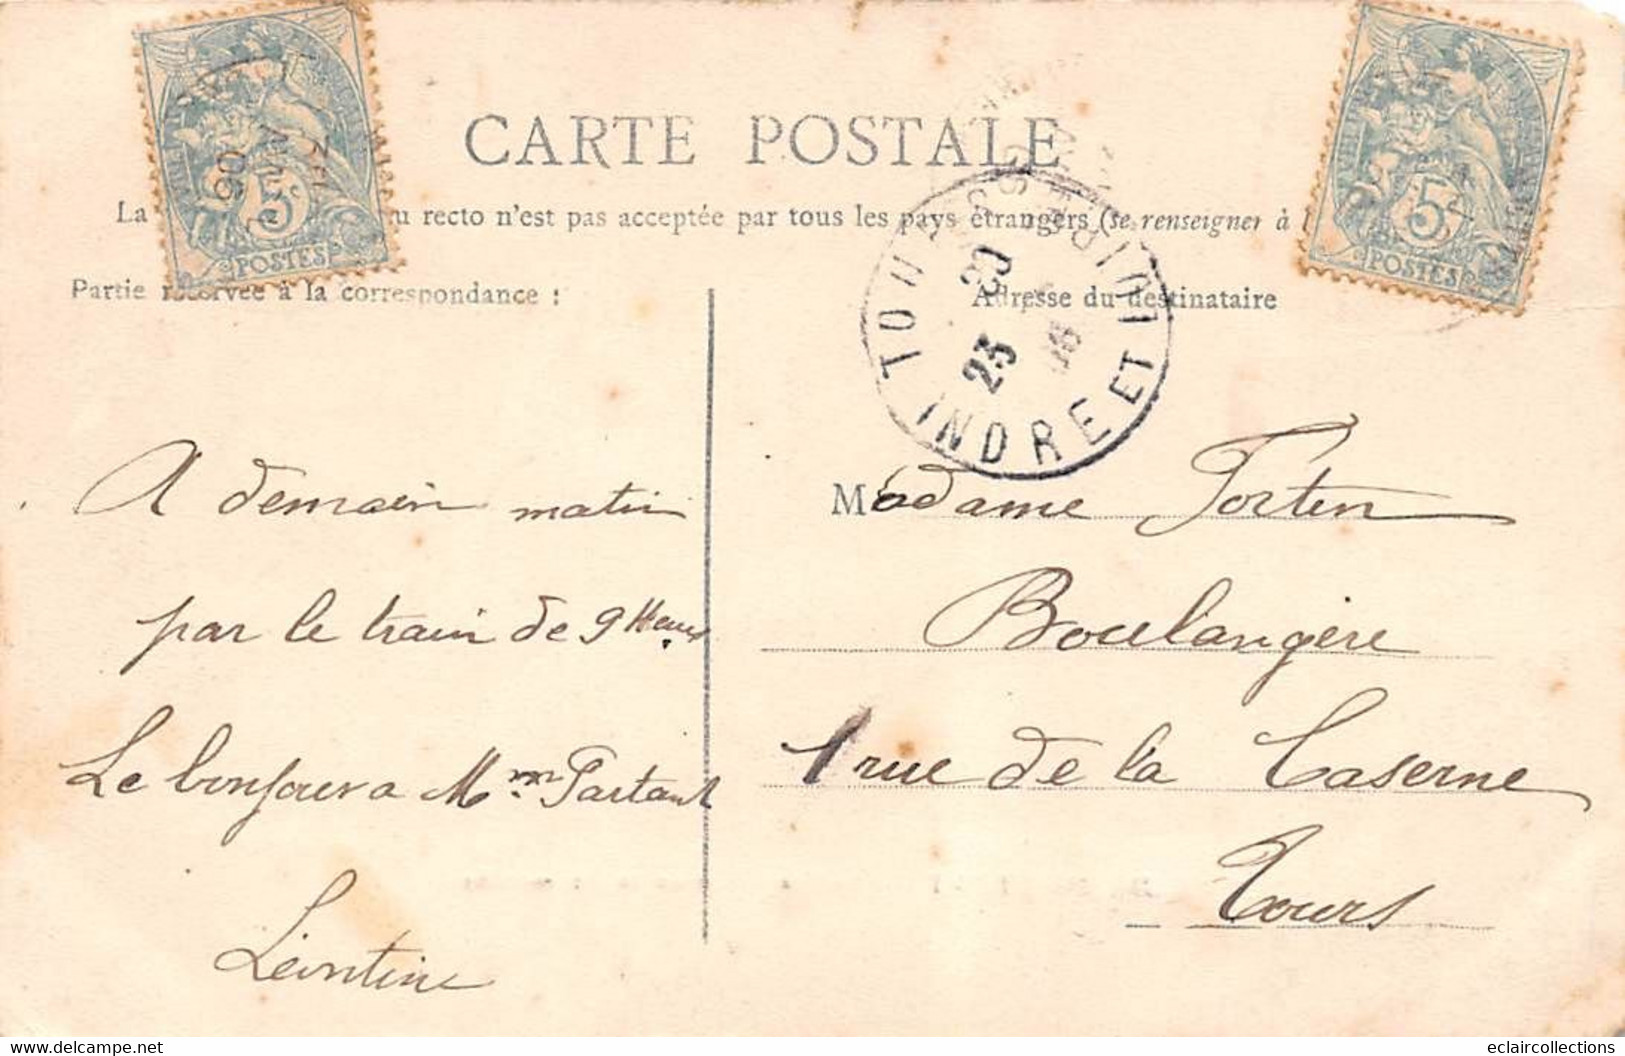 CARTE POSTALE
La recto n'est pas acceptée par tous les pays étrangers (se renseigner à
Partie réservée à la correspondance :
Adresse du destinataire
5c
POSTES
5c
POSTES
TOURS
INDRE ET
23
A demain matin
par le train de 9 Heures
Le bonjour a Mme Partant
Leontine
Madame
Boulangère
1 rue de la Caserne
Tours
delcampe.net
eclaircollections